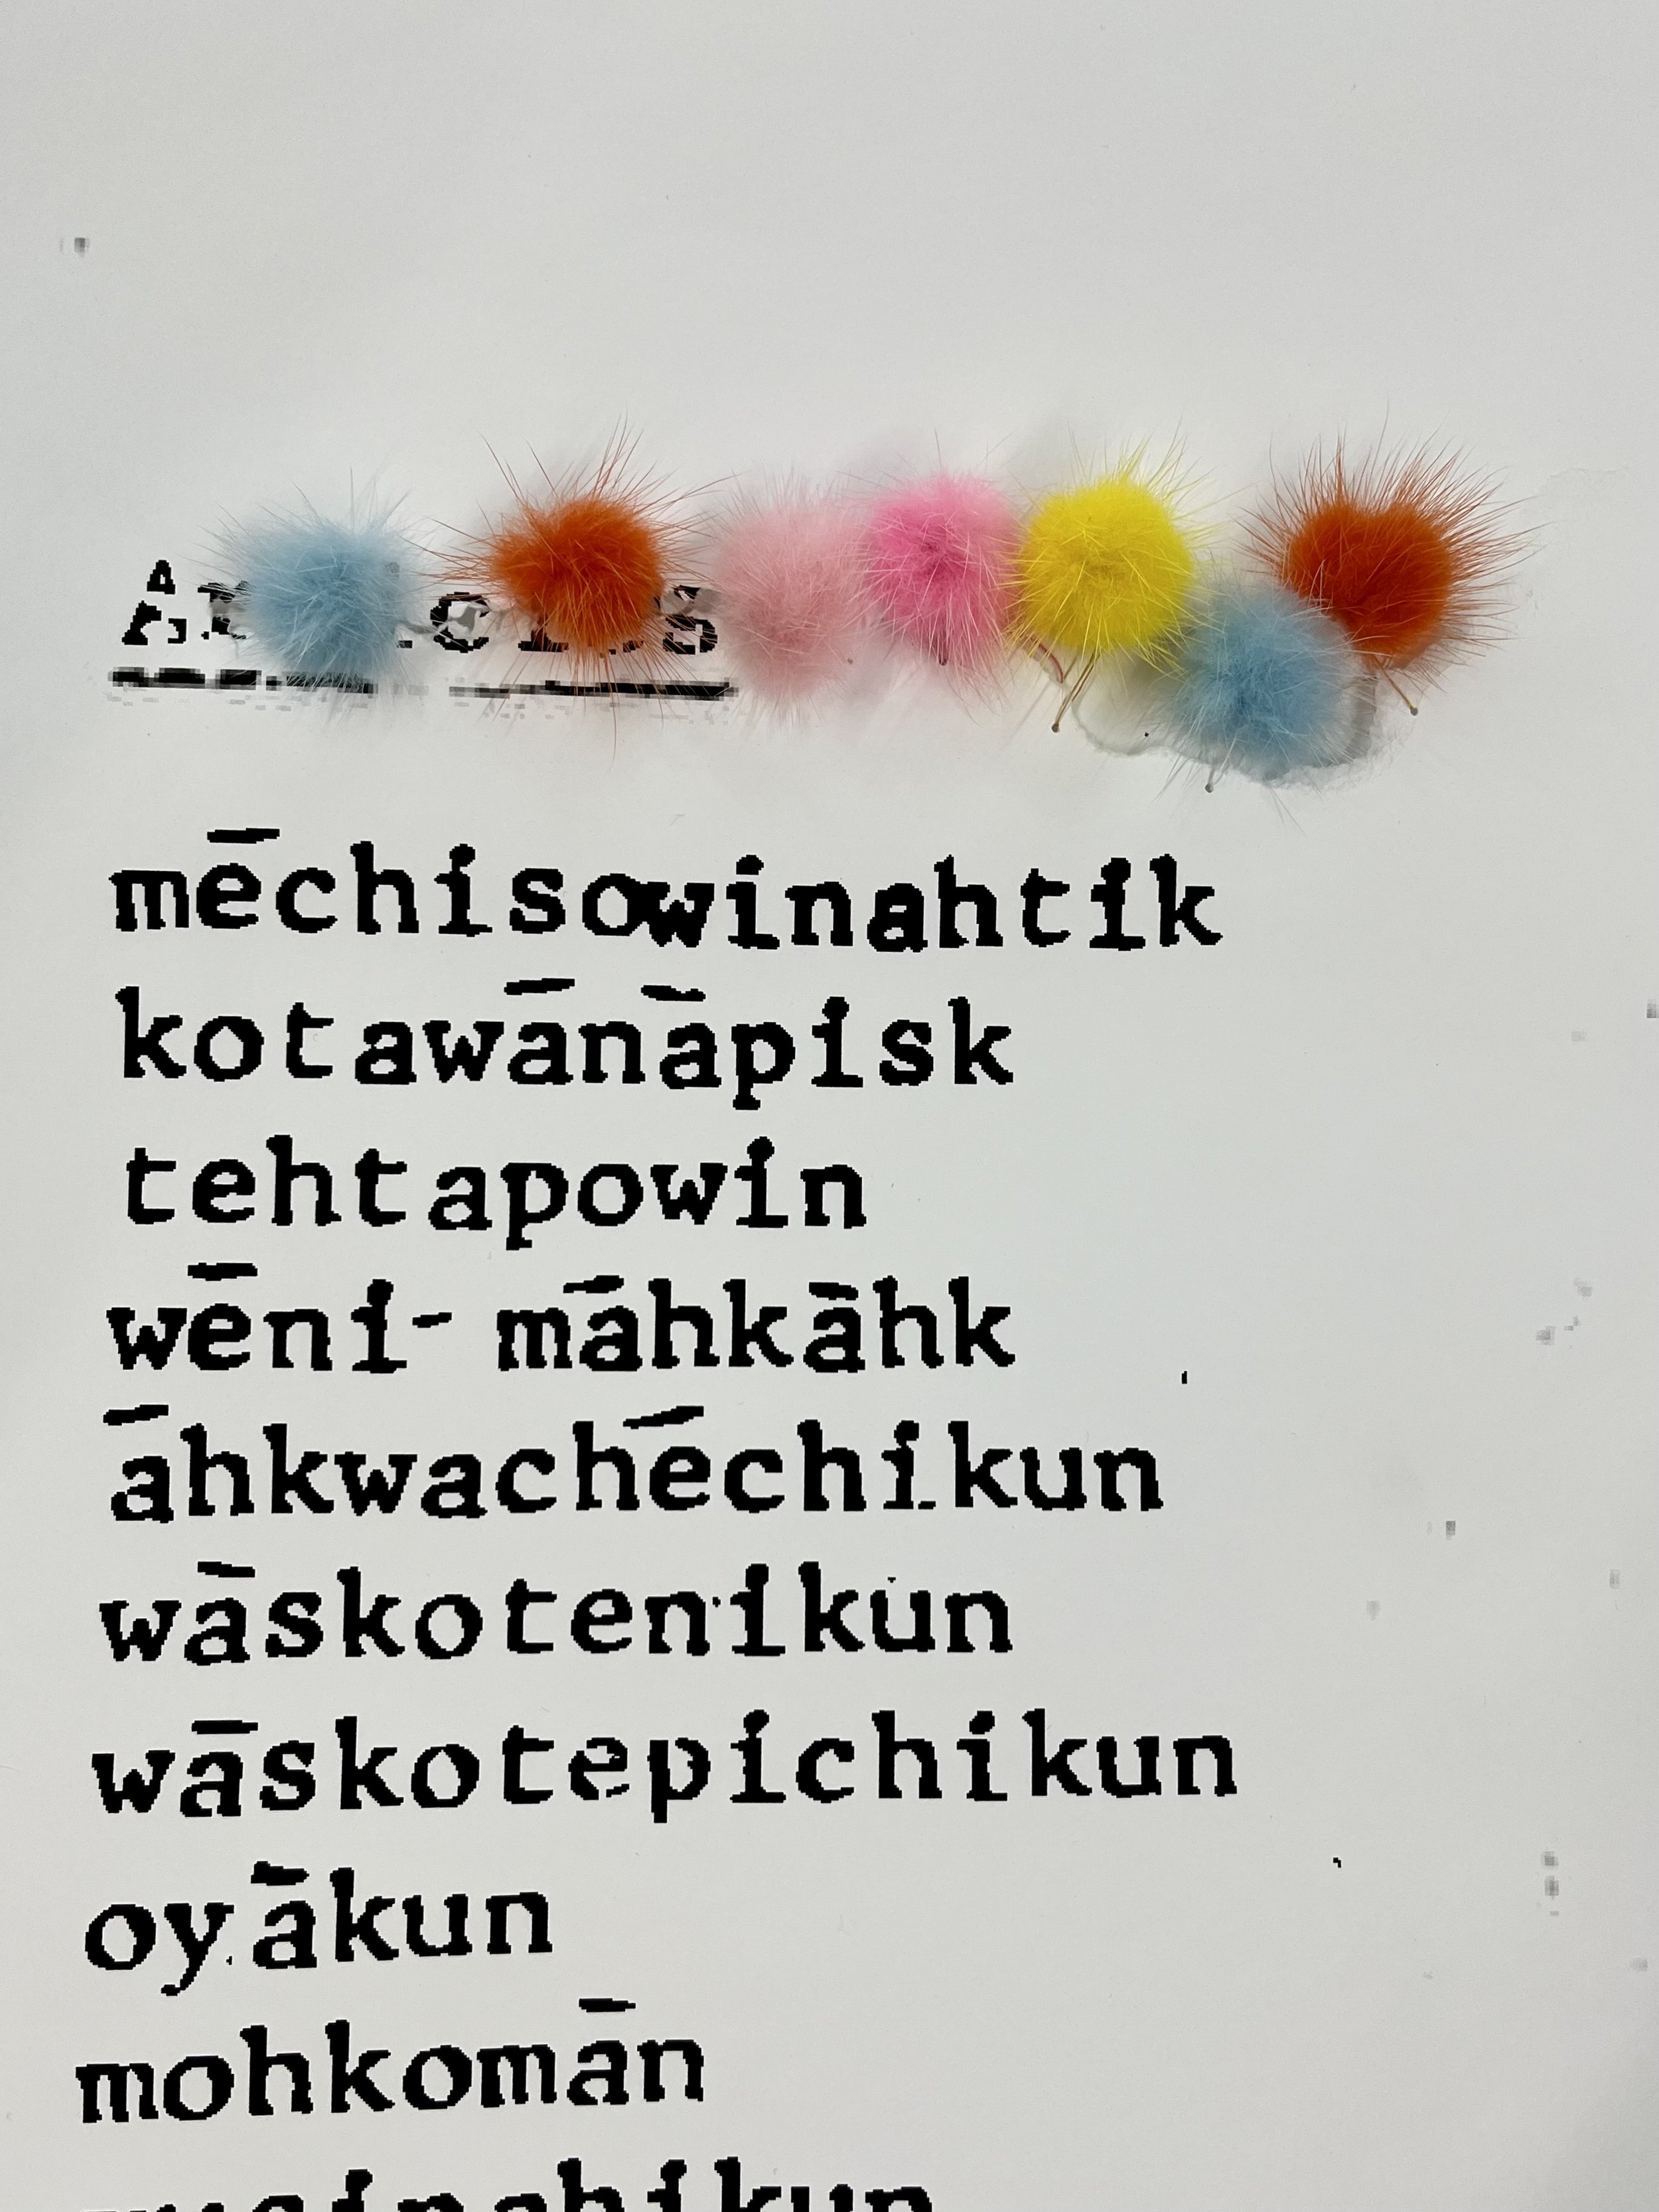 mēchisowinahtik
kotawānāpisk
tehtapowin
wēni- māhkāhk
āhkwachēchikun
wāskotenikun
wāskotepichikun
oyākun
mohkomān